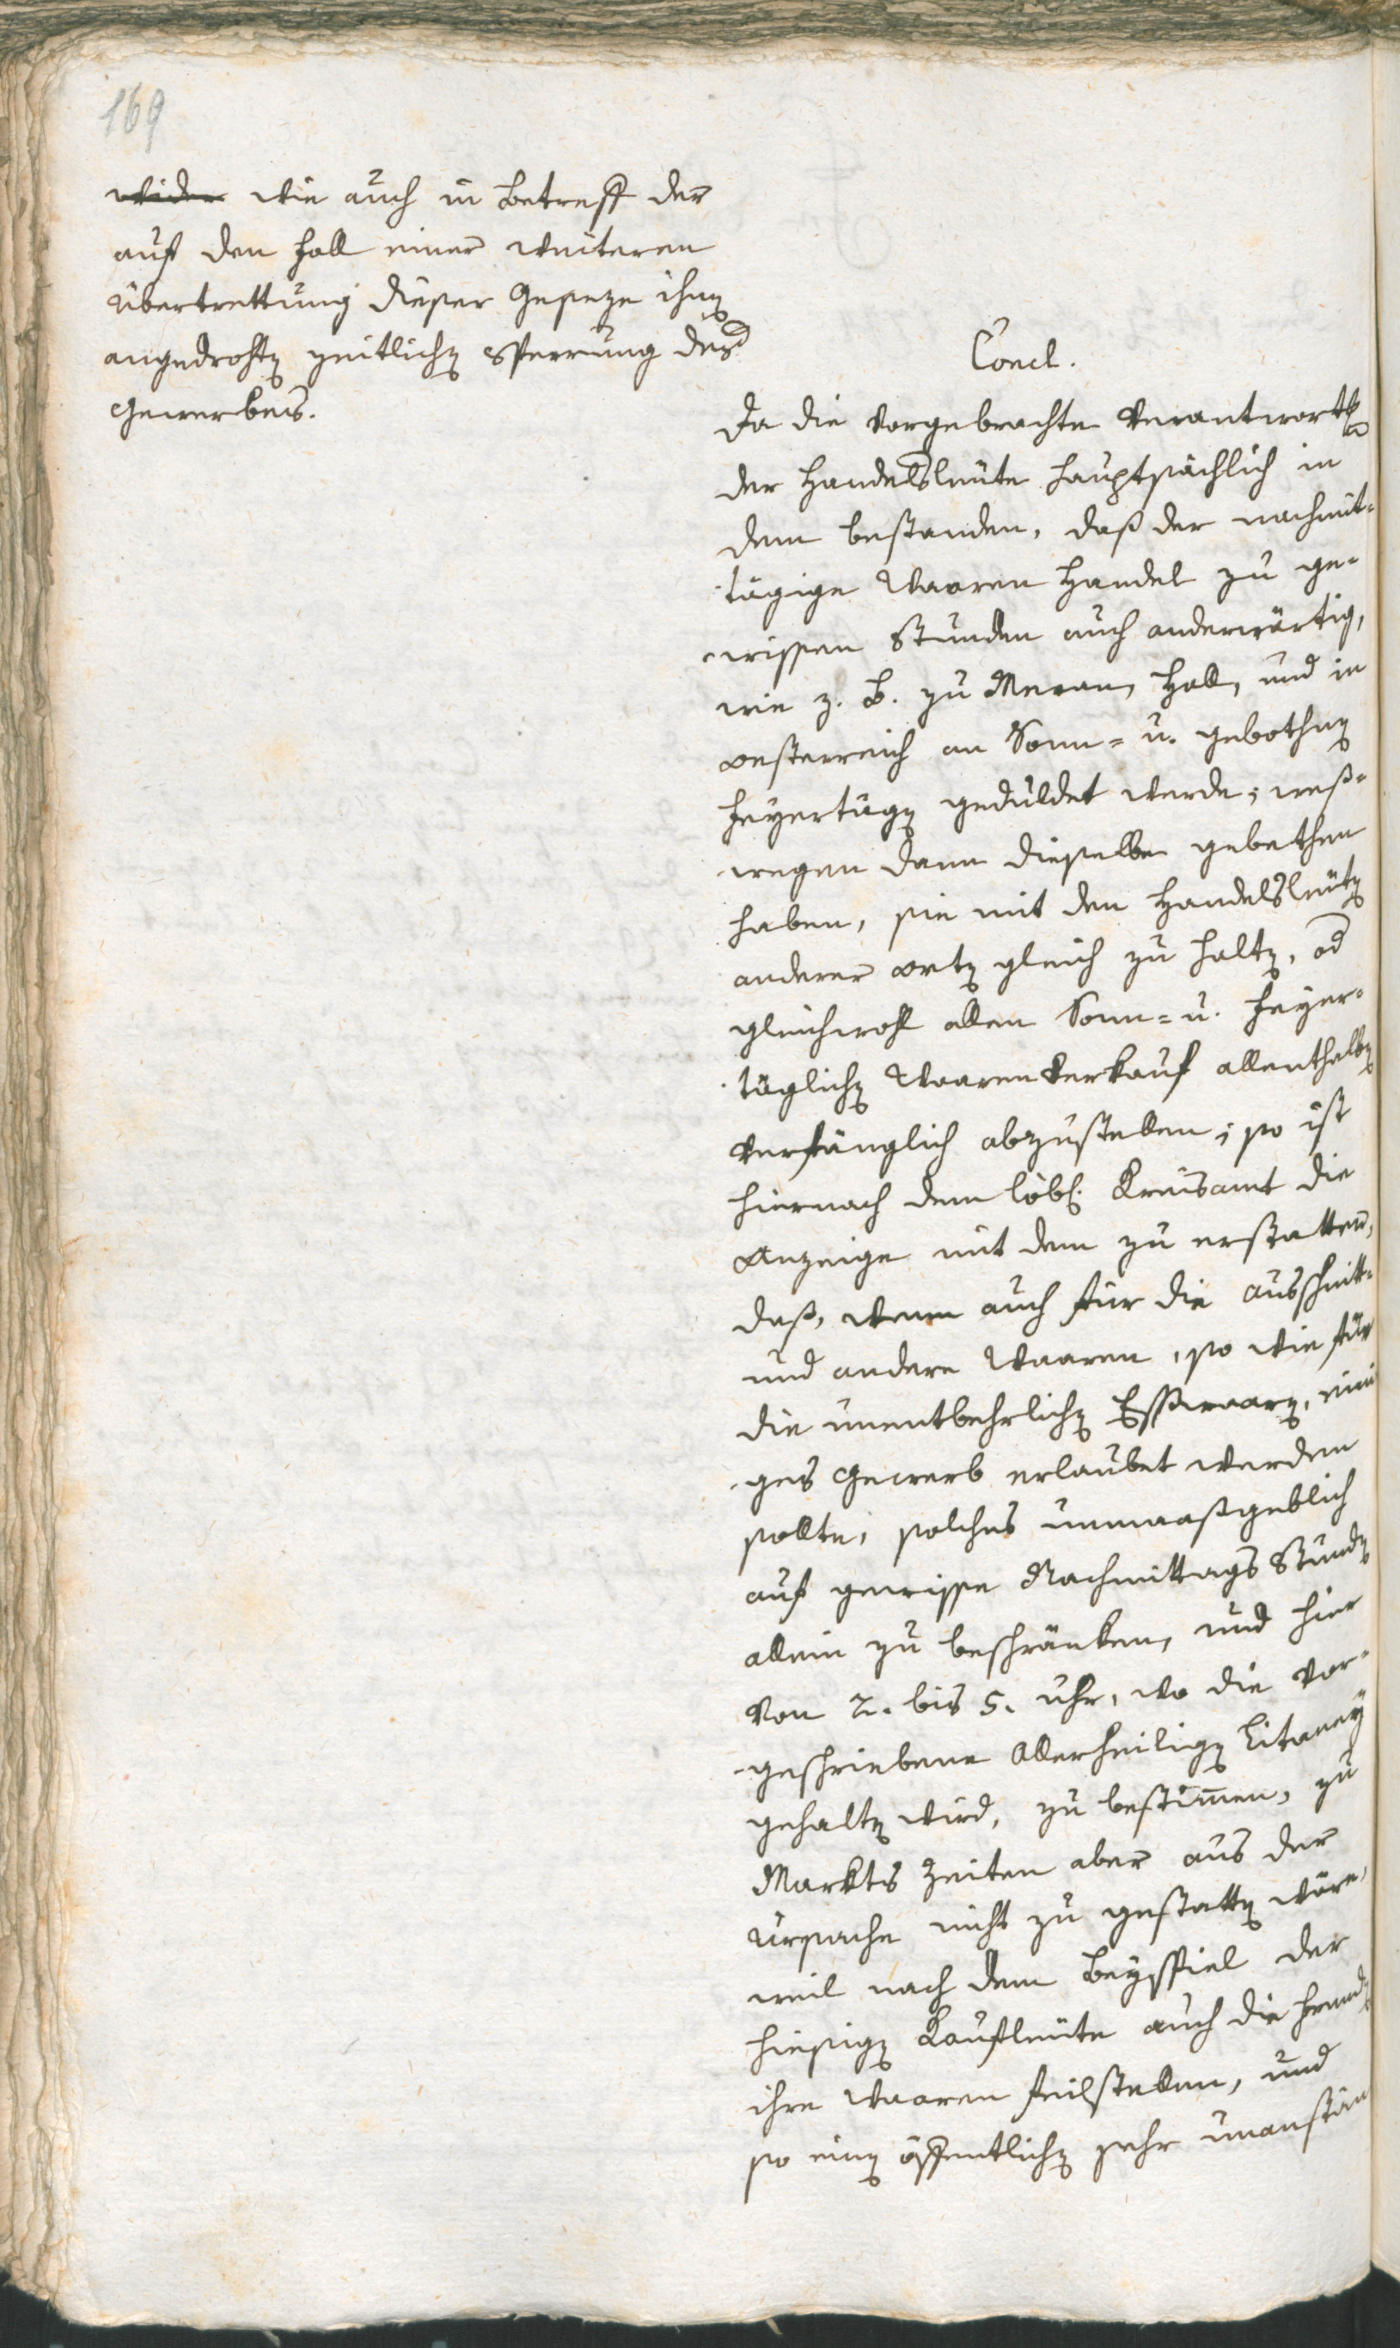 169
wider wie auch in Betreff der
auf den Fall einer weiteren
Übertrettung dieser Geseze ihnen
angedrohten zeitlichen Sperrung des
Gewerbes.
Concl.
Da die vorgebrachte Verantwortung
der Handelsleüte hauptsächlich in
dem bestanden, daß der nachmit-
tägige Waaren Handel zu ge-
wissen Stunden auch anderwärtig,
wie z. B. zu Meran, Hall, und in
Oesterreich an Sonn- u. gebothenen
Feyertägen geduldet werde; weß-
wegen dann dieselbe gebethen
haben, sie mit den Handelsleüten
anderer Orten gleich zu halten, od
gleichwohl allen Sonn- u. Feyer-
täglichen Waaren Verkauf allenthalben
verfänglich abzustellen; so ist
hiernach dem löbl. Kreisamt die
Anzeige mit dem zu erstatten,
daß, wenn auch für die Ausschnitt-
und andere Waaren, so wie für
die unentbehrlichen Esswaaren, eini
ges Gewerb erlaubet werden
sollte, solches unmaaßgeblich
auf gewisse Nachmittags Stunden
allein zu beschränken, und hier
von 2. bis 5. Uhr, wo die vor-
geschriebene Allerheiligen Litaney
gehalten wird, zu bestimmen, zu
Markts Zeiten aber aus der
Ursache nicht zu gestatten wäre,
weil nach dem Beyspiel der
hiesigen Kaufleüte auch die Fremden
ihre Waaren feilstellen, und
so einen öffentlichen sehr unanstän